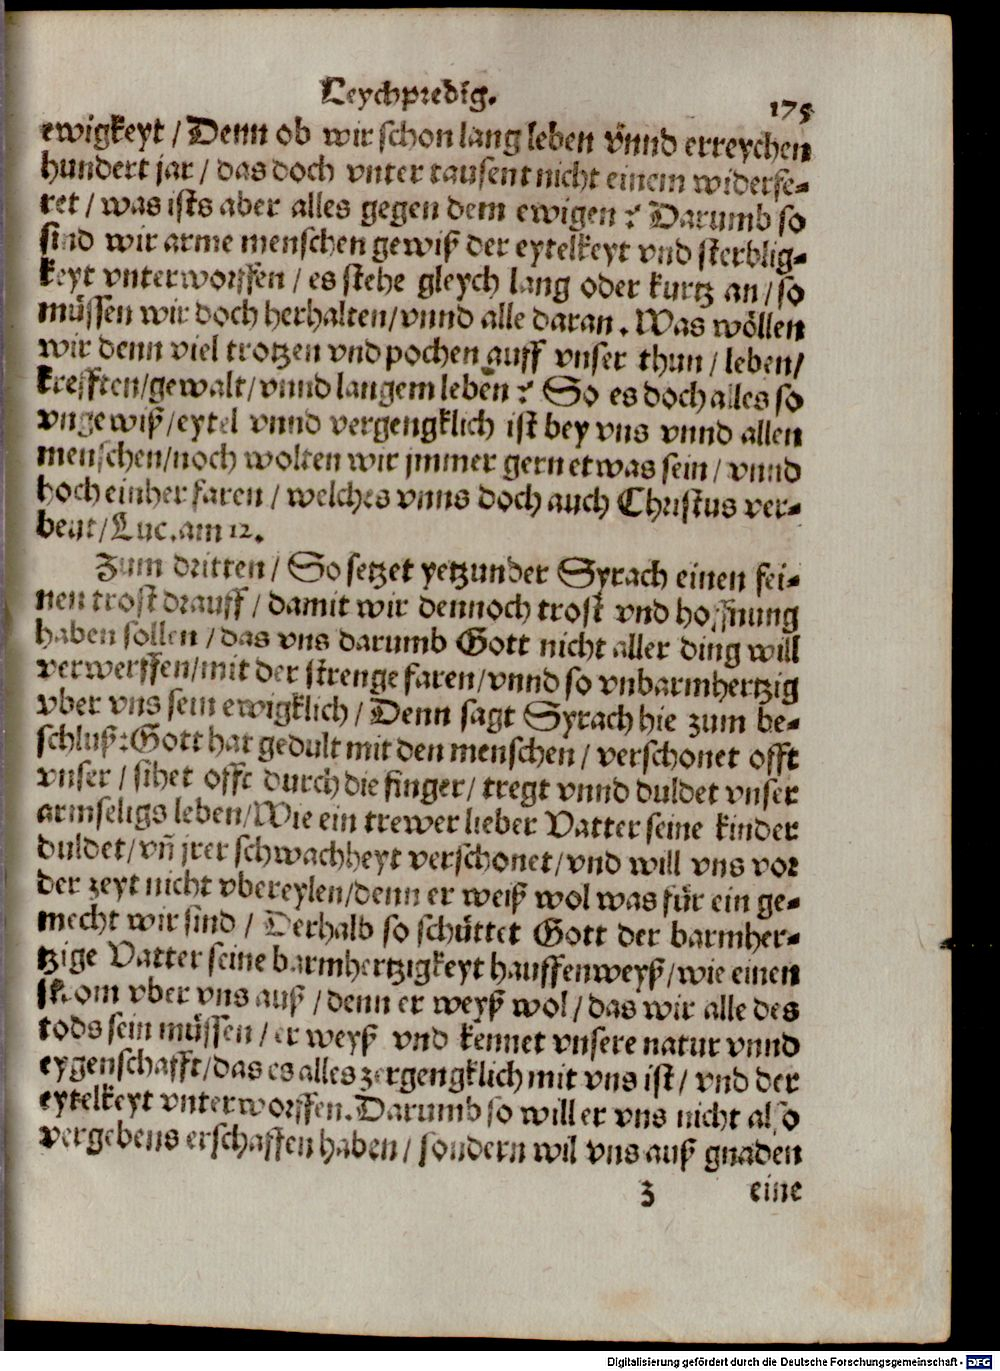 Leychpredig.
175
ewigkeyt / Denn ob wir schon lang leben vnnd erreychen
hundert jar / das doch vnter tausent nicht einem widerfe-
ret / was ists aber alles gegen dem ewigen? Darumb so
sind wir arme menschen gewiß der eytelkeyt vnd sterblig-
keyt vnterworffen / es stehe gleych lang oder kurtz an / so
müssen wir doch herhalten / vnnd alle daran. Was wöllen
wir denn viel trotzen vnd pochen auff vnser thun / leben /
krefften / gewalt / vnnd langem leben? So es doch alles so
vngewiß / eytel vnnd vergengklich ist bey vns vnnd allen
menschen / noch wolten wir jmmer gern etwas sein / vnnd
hoch einher faren / welches vnns doch auch Christus ver-
beut / Luc. am 12.
Zum dritten / So setzet yetzunder Syrach einen fei-
nen trost drauff / damit wir dennoch trost vnd hoffnung
haben sollen / das vns darumb Gott nicht aller ding will
verwerffen / mit der strenge faren / vnnd so vnbarmhertzig
vber vns sein ewigklich / Denn sagt Syrach hie zum be-
schluß: Gott hat gedult mit den menschen / verschonet offt
vnser / sihet offt durch die finger / tregt vnnd duldet vnser
armseligs leben / Wie ein trewer lieber Vatter seine kinder
duldet / vñ jrer schwachheyt verschonet / vnd will vns vor
der zeyt nicht vbereylen / denn er weiß wol was für ein ge-
mecht wir sind / Derhalb so schüttet Gott der barmher-
tzige Vatter seine barmhertzigkeyt hauffenweyß / wie einen
strom vber vns auß / denn er weyß wol / das wir alle des
tods sein müssen / er weyß vnd kennet vnsere natur vnnd
eygenschafft / das es alles zergengklich mit vns ist / vnd der
eytelkeyt vnterworffen. Darumb so will er vns nicht also
vergebens erschaffen haben / sondern wil vns auß gnaden
z eine
Digitalisierung gefördert durch die Deutsche Forschungsgemeinschaft - DFG